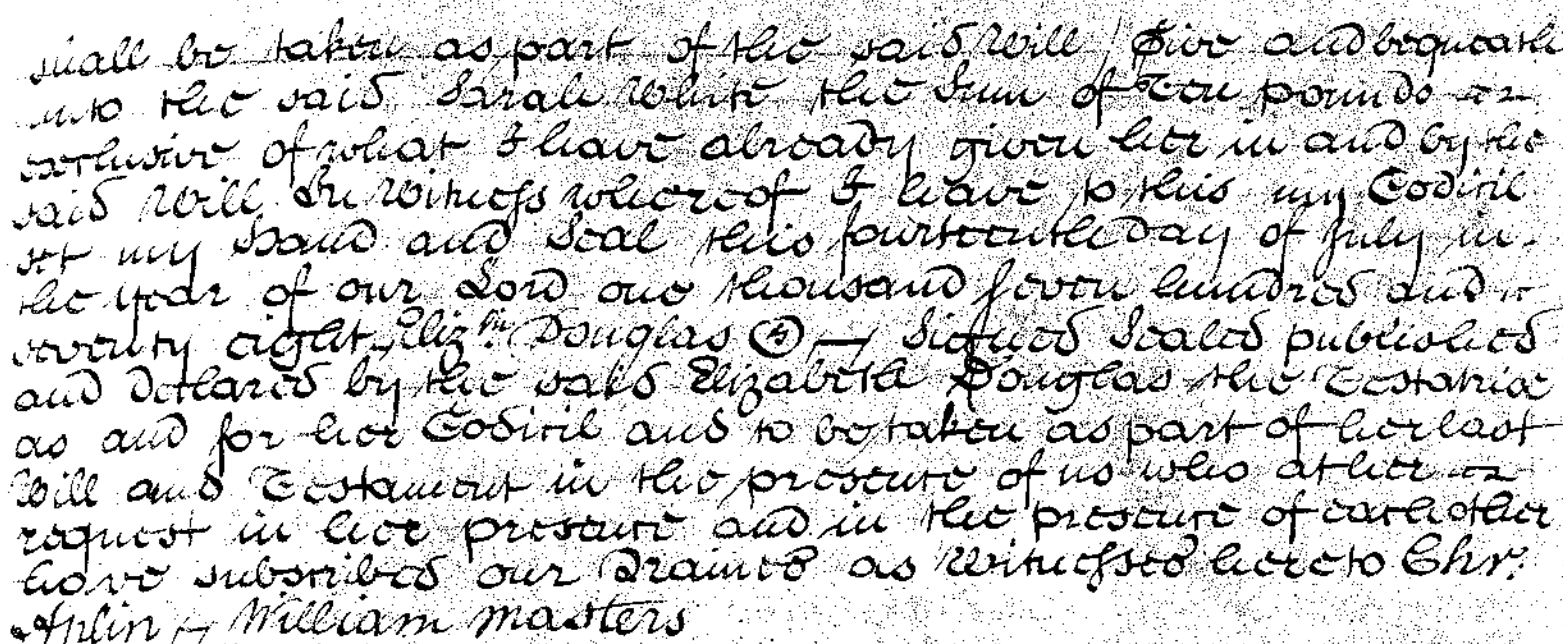 shall be taken as part of the said Will I Give and bequeath
unto the said Sarah White the Sum of Ten pounds
exclusive of what I have already given her in and by the
said Will In Witness whereof I have to this my Codicil
set my Hand and Seal this fourteenth Day of July in
the year of our Lord one thousand seven hundred and
seventy eight Eliz:th Douglas Signed Sealed published
and declared by the said Elizabeth Douglas the Testatrix
as and for her Codicil and to be taken as part of her last
Will and Testament in the presence of us who at her
request in her presence and in the presence of each other
have subscribed our Names as Witnesses hereto Chr:
Aplin William Masters